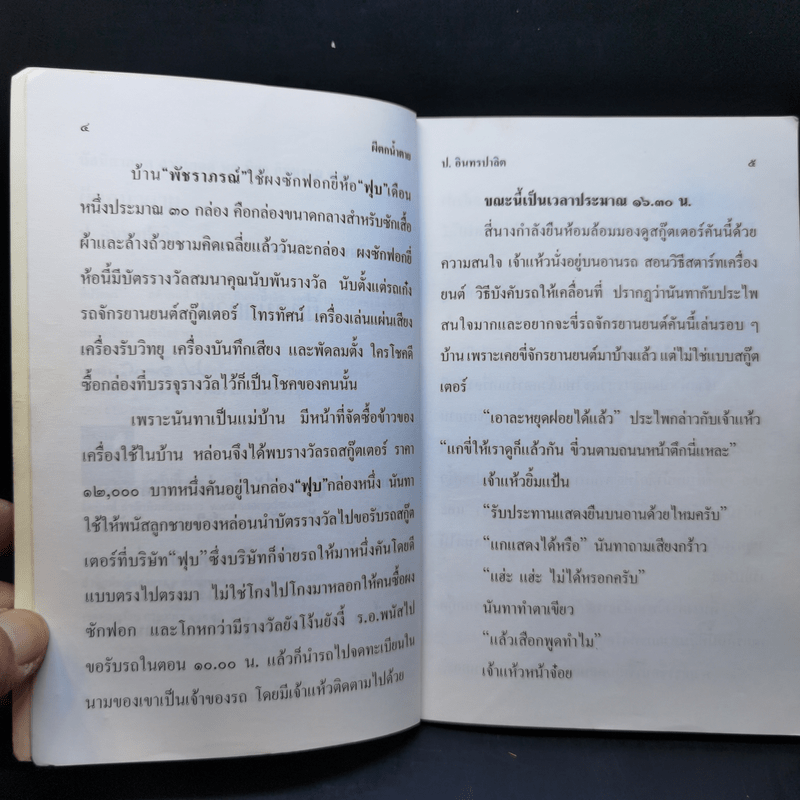 ๔
ผีตกน้ำตาย
บ้าน “พัชราภรณ์” ใช้ผงซักฟอกยี่ห้อ “ฟุบ” เดือน
หนึ่งประมาณ ๓๐ กล่อง คือกล่องขนาดกลางสำหรับซักเสื้อ
ผ้าและล้างถ้วยชามคิดเฉลี่ยแล้ววันละกล่อง ผงซักฟอกยี่
ห้อนี้มีบัตรรางวัลสมนาคุณนับพันรางวัล นับตั้งแต่รถเก๋ง
รถจักรยานยนต์สกู๊ตเตอร์ โทรทัศน์ เครื่องเล่นแผ่นเสียง
เครื่องรับวิทยุ เครื่องบันทึกเสียง และพัดลมตั้ง ใครโชคดี
ซื้อกล่องที่บรรจุรางวัลไว้ก็เป็นโชคของคนนั้น
เพราะนันทาเป็นแม่บ้าน มีหน้าที่จัดซื้อข้าวของ
เครื่องใช้ในบ้าน หล่อนจึงได้พบรางวัลรถสกู๊ตเตอร์ ราคา
๑๒,๐๐๐ บาทหนึ่งคันอยู่ในกล่อง “ฟุบ” กล่องหนึ่ง นันทา
ใช้ให้พนัสลูกชายของหล่อนนำบัตรรางวัลไปขอรับรถสกู๊ต
เตอร์ที่บริษัท “ฟุบ” ซึ่งบริษัทก็จ่ายรถให้มาหนึ่งคันโดยดี
แบบตรงไปตรงมา ไม่ใช่โกงไปโกงมาหลอกให้คนซื้อผง
ซักฟอก และโกหกว่ามีรางวัลยังโง้นยังงี้ ร.อ.พนัสไป
ขอรับรถในตอน ๑๐.๐๐ น. แล้วก็นำรถไปจดทะเบียนใน
นามของเขาเป็นเจ้าของรถ โดยมีเจ้าแห้วติดตามไปด้วย
ป. อินทรปาลิต
๕
ขณะนี้เป็นเวลาประมาณ ๑๖.๓๐ น.
สี่นางกำลังยืนห้อมล้อมมองดูสกู๊ตเตอร์คันนี้ด้วย
ความสนใจ เจ้าแห้วนั่งอยู่บนอานรถ สอนวิธีสตาร์ทเครื่อง
ยนต์ วิธีบังคับรถให้เคลื่อนที่ ปรากฏว่านันทากับประไพ
สนใจมากและอยากจะขี่รถจักรยานยนต์คันนี้เล่นรอบ ๆ
บ้าน เพราะเคยขี่จักรยานยนต์มาบ้างแล้ว แต่ไม่ใช่แบบสกู๊ต
เตอร์
“เอาละหยุดฝอยได้แล้ว” ประไพกล่าวกับเจ้าแห้ว
“แกขี่ให้เราดูก็แล้วกัน ขี่วนตามถนนหน้าตึกนี่แหละ”
เจ้าแห้วยิ้มแป้น
“รับประทานแสดงยืนบนอานด้วยไหมครับ”
“แกแสดงได้หรือ” นันทาถามเสียงกร้าว
“แฮ่ะ แฮ่ะ ไม่ได้หรอกครับ”
นันทาทำตาเขียว
“แล้วเสือกพูดทำไม”
เจ้าแห้วหน้าจ๋อย